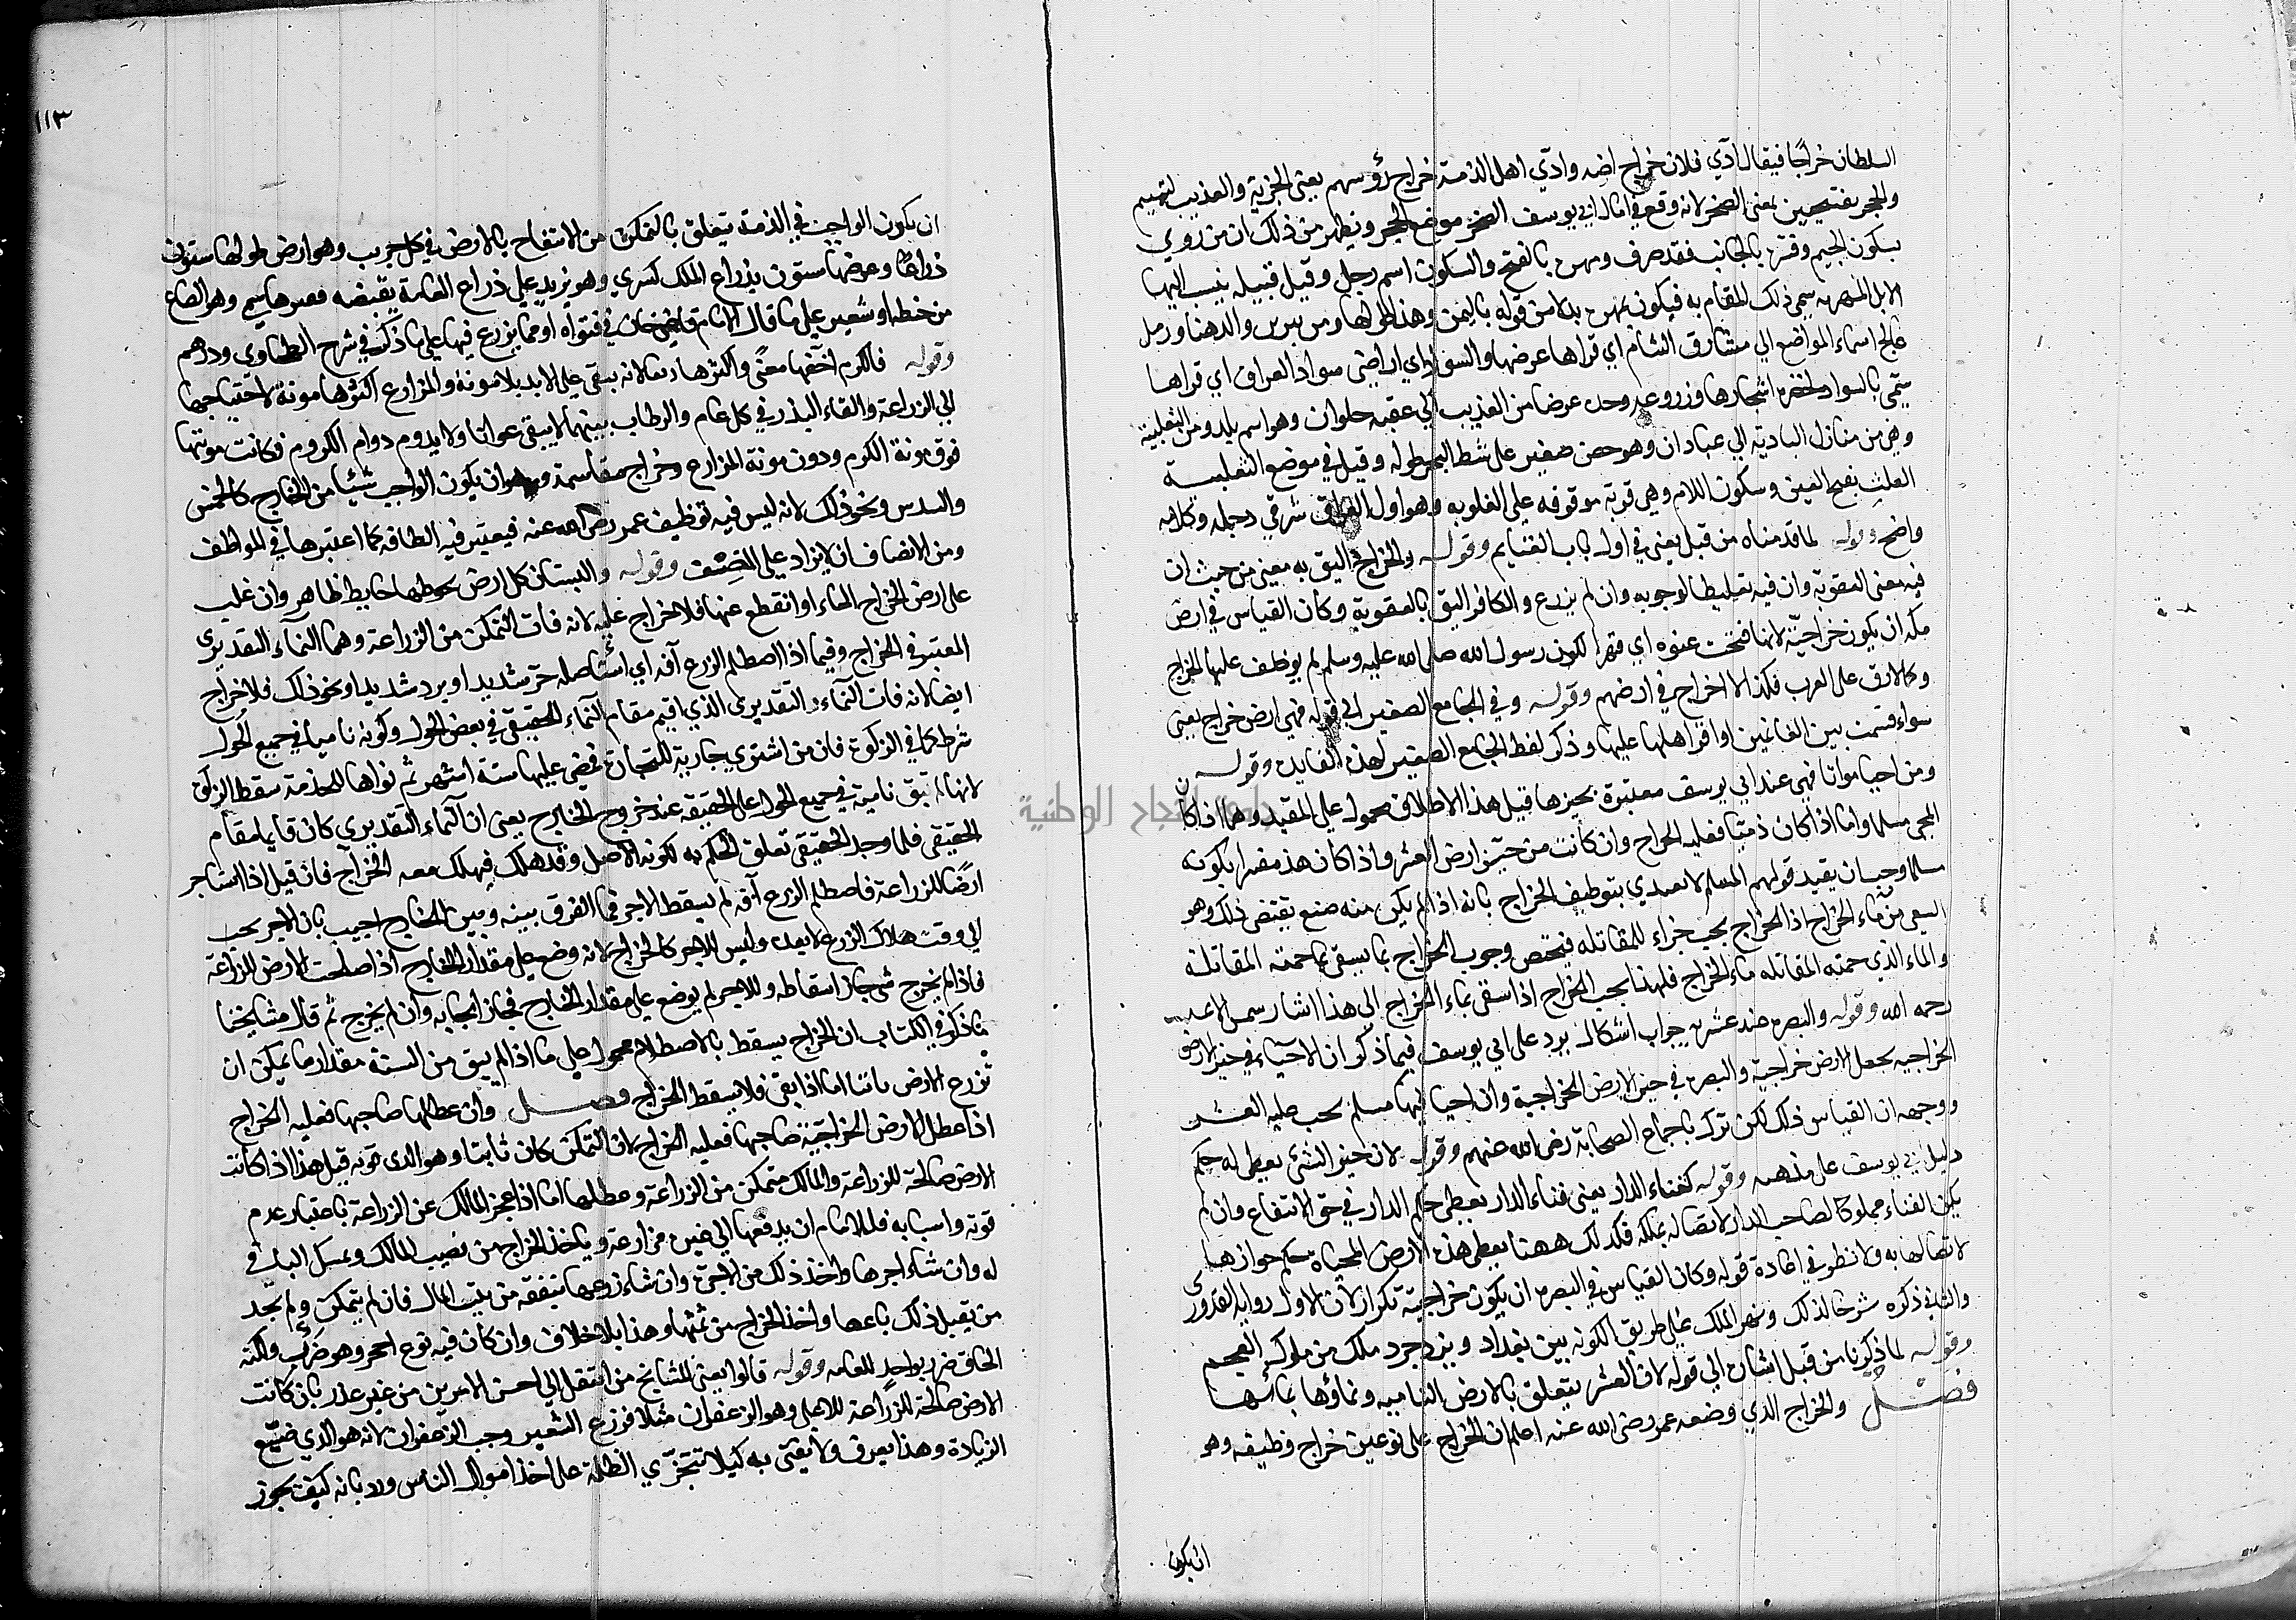 السلطان خراجا فيقال ادي فلان خراج ارضه وادي اهل الذمة خراج رؤسهم يعني الجزية والعذيب لتميم
والحجر بفتحتين بمعنى الصخر لانه وقع في امالي ابي يوسف الصخر موضع الحجر ويظهر من ذلك ان من روي
بسكون الجيم وفسره بالجانب فقد حرف ومهره بالفتح والسكون اسم رجل وقيل قبيله ينسب اليها
الابل المهريه سمي ذلك المقام به فيكون بمهره بدلا من قوله باليمن وهذا طولها ومن يبرين والدهنا ورمل
عالج اسماء المواضع الي مشارق الشام اي قراها عرضها والسواد اي اراضي سواد العراق اي قراها
سمي بالسواد لخضرة اشجارها وزروعه وحده عرضا من العذيب الي عقبه حلوان وهو اسم بلد ومن الثعلبية
وهي من منازل البادية الي عبادان وهو حصن صغير على شط البحر طوله وقيل في موضع الثعلبية
العلث بفتح العين وسكون اللام وهي قرية موقوفه على العلويه وهو اول العراق شرقي دجله وكلامه
واضح وقوله لما قدمناه من قبل يعني في اول باب الغنايم وقوله والخراج اليق به معنى من حيث ان
فيه معنى العقوبة وان فيه تغليظا لوجوبه وان لم يزرع والكافر اليق بالعقوبة وكان القياس في ارض
مكه ان يكون خراجية لانها فتحت عنوه اي قهرا لكون رسول الله صلى الله عليه وسلم لم يوظف عليها الخراج
وكما لا رق على العرب فكذا لا خراج في ارضهم وقوله وفي الجامع الصغير الي قوله فهي ارض خراج يعني
سواء قسمت بين الغانمين او اقر اهلها عليها وذكر لفظ الجامع الصغير لهذه الفايده وقوله
ومن احيا مواتا فهي عند ابي يوسف معتبرة بحيزها قيل هذا الاطلاق محمول علي المقيد وهو ما اذا كان
المحي مسلما واما اذا كان ذميا فعليه الخراج وان كانت من حيز ارض العشر واذا كان هذا مفسرا بكونه
مسلما وجب ان يقيد قولهم المسلم لا يبتدي بتوظيف الخراج بانه اذا لم يكن منه صنع يقتضي ذلك وهو
السقي من ماء الخراج اذ الخراج يجب جزاء للمقاتله فيختص وجوب الخراج بما يسقي بما حمته المقاتلة
والماء الذي حمته المقاتله ماء الخراج فلهذا يجب الخراج اذا سقي بماء الخراج الى هذا اشار شمس الائمه
رحمه الله وقوله والبصره عنده عشريه جواب اشكال يرد على ابي يوسف فيما ذكر ان الاحياء في حيز الارض
الخراجيه يجعل الارض خراجية والبصره في حيز الارض الخراجية وان احياها مسلم يجب عليه العشر
ووجهه ان القياس ذلك لكن ترك باجماع الصحابة رضي الله عنهم وقوله لان حيز الشي يعطى له حكمه
دليل ابي يوسف على مذهبه وقوله كفناء الدار يعني فناء الدار يعطى حكم الدار في حق الانتفاع وان لم
يكن الفناء مملوكا لصاحب الدار لاتصاله بملكه فكذلك ههنا يعطى هذه الارض المحياه حكم جوازها
لاتصالها به ولا نظر في اعادة قوله وكان القياس في البصره ان يكون خراجية تكرار لان الاول رواية القدوري
والثاني ذكره شرحا لذلك ونهر الملك علي طريق الكوفه بين بغداد ويزدجرد ملك من ملوك العجم
وقوله لما ذكرنا من قبل اشارة الي قوله لان العشر يتعلق بالارض الناميه ونماؤها بمائها
فصل والخراج الذي وضعه عمر رضي الله عنه اعلم ان الخراج على نوعين خراج وظيفه وهو
ان يكون
١١٣
ان يكون الواجب في الذمة يتعلق بالتمكن من الانتفاع بالارض في كل جريب وهو ارض طولها ستون
ذراعا وعرضها ستون بذراع الملك كسري وهو يزيد علي ذراع العامة بقبضه قفيز هاشمي وهو الصاع
من حنطه او شعير علي ما قال الامام قاضي خان في فتواه او مما يزرع فيها علي ما ذكر في شرح الطحاوي ودرهم
وقوله فالكرم اخفها مؤنة واكثرها ريعا لانه يبقى علي الابد بلا مونة والمزارع اكثرها مونة لاحتياجها
الي الزراعة والقاء البذر في كل عام والرطاب بينهما لا يبقى عواما ولا يدوم دوام الكروم فكانت مونتها
فوق مونة الكرم ودون مونة المزارع وخراج مقاسمة وهو ان يكون الواجب شيئا من الخارج كالخمس
والسدس ونحو ذلك لانه ليس فيه توظيف عمر رضي الله عنه فيعتبر فيه الطاقه كما اعتبرها في الموظف
ومن الانصاف ان لا يزاد علي النصف وقوله والبستان كل ارض يحوطها حايط ظاهر وان غلب
على ارض الخراج الماء او انقطع عنها فلا خراج عليه لانه فات التمكن من الزراعة وهما النماء التقديري
المعتبر في الخراج وفيما اذا اصطلم الزرع آفه اي استاصله حر شديد او برد شديد او نحو ذلك فلا خراج
ايضا لانه فات النماء التقديري الذي اقيم مقام النماء الحقيقي في بعض الحول وكونه ناميا في جميع الحول
شرط كما في الزكوة فان من اشتري جارية للتجارة فمضى عليها ستة اشهر ثم نواها للخدمة سقط الزكوة
لانها لم تبق نامية في جميع الحول على الحقيقه عند خروج الخارج يعني ان النماء التقديري كان قايما مقام
الحقيقي فلما وجد الحقيقي تعلق الحكم به لكونه الاصل وقد هلك فيهلك معه الخراج فان قيل اذا استاجر
ارضا للزراعة فاصطلم الزرع آفه لم يسقط الاجر فما الفرق بينه وبين الخارج اجيب بان الاجر يجب
الي وقت هلاك الزرع لا بعده وليس الاجر كالخراج لانه وضع علي مقدار الخارج اذا صلحت الارض للزراعة
فاذا لم يخرج شي جاز اسقاطه والاجر لم يوضع علي مقدار الخارج فجاز ايجابه وان لم يخرج ثم قال مشايخنا
ما ذكر في الكتاب ان الخراج يسقط بالاصطلام محمول علي ما اذا لم يبق من السنة مقدار ما يمكن ان
تزرع الارض ثانيا اما اذا بقي فلا يسقط الخراج فصل وان عطلها صاحبها فعليه الخراج
اذا عطل الارض الخراجية صاحبها فعليه الخراج لان التمكن كان ثابتا وهو الذي فوته قيل هذا اذا كانت
الارض صالحة للزراعة والمالك متمكن من الزراعة وعطلها اما اذا عجز المالك عن الزراعة باعتبار عدم
قوته واسبابه فللامام ان يدفعها الي غيره مزارعة وياخذ الخراج من نصيب المالك ويمسك الباقي
له وان شاء اجرها واخذ ذلك من الاجرة وان شاء زرعها بنفقة من بيت المال فان لم يتمكن ولم يجد
من يقبل ذلك باعها واخذ الخراج من ثمنها وهذا بلا خلاف وان كان فيه نوع الحجر وهو ضرر ولكنه
الحاق ضرر بواحد للعامه وقوله قالوا يعني المشايخ من انتقل الي احسن الامرين من غير عذر بان كانت
الارض صالحة للزراعة للاعلى وهو الزعفران مثلا فزرع الشعير وجب الزعفران لانه هو الذي ضيع
الزيادة وهذا يعرف ولا يفتى به كيلا تتجري الظلمة على اخذ اموال الناس ورد بانه كيف يجوز
جامعة النجاح الوطنية